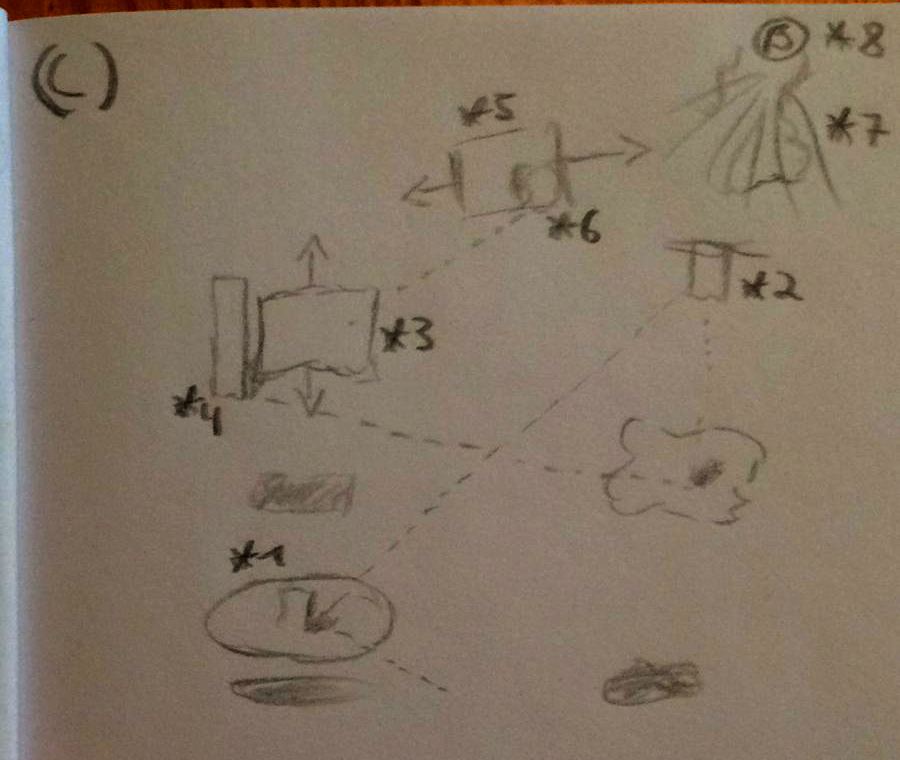 (C)
B *8
*5
*7
*6
*2
*3
*4
*1